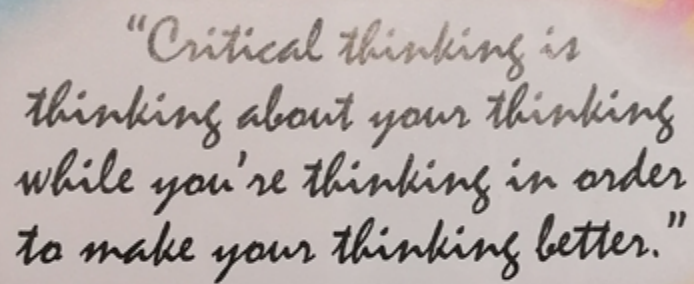 “Critical thinking is
thinking about your thinking
while you're thinking in order
to make your thinking better.”